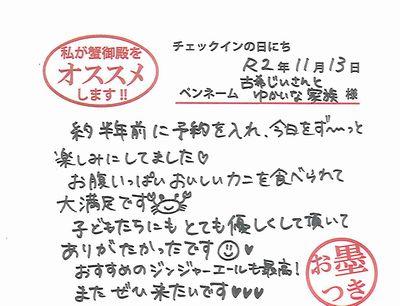 私が蟹御殿を
オススメ
します!!
チェックインの日にち
R2年11月13日
古希じいさんと
ペンネーム ゆかいな家族 様
約半年前に予約を入れ、今日をず〜っと
楽しみにしてました♡
お腹いっぱいおいしいカニを食べられて
大満足です
子どもたちにもとても優しくして頂いて
ありがたかったです☺♡
おすすめのジンジャーエールも最高!
またぜひ来たいです♥♥♥
お墨
つき